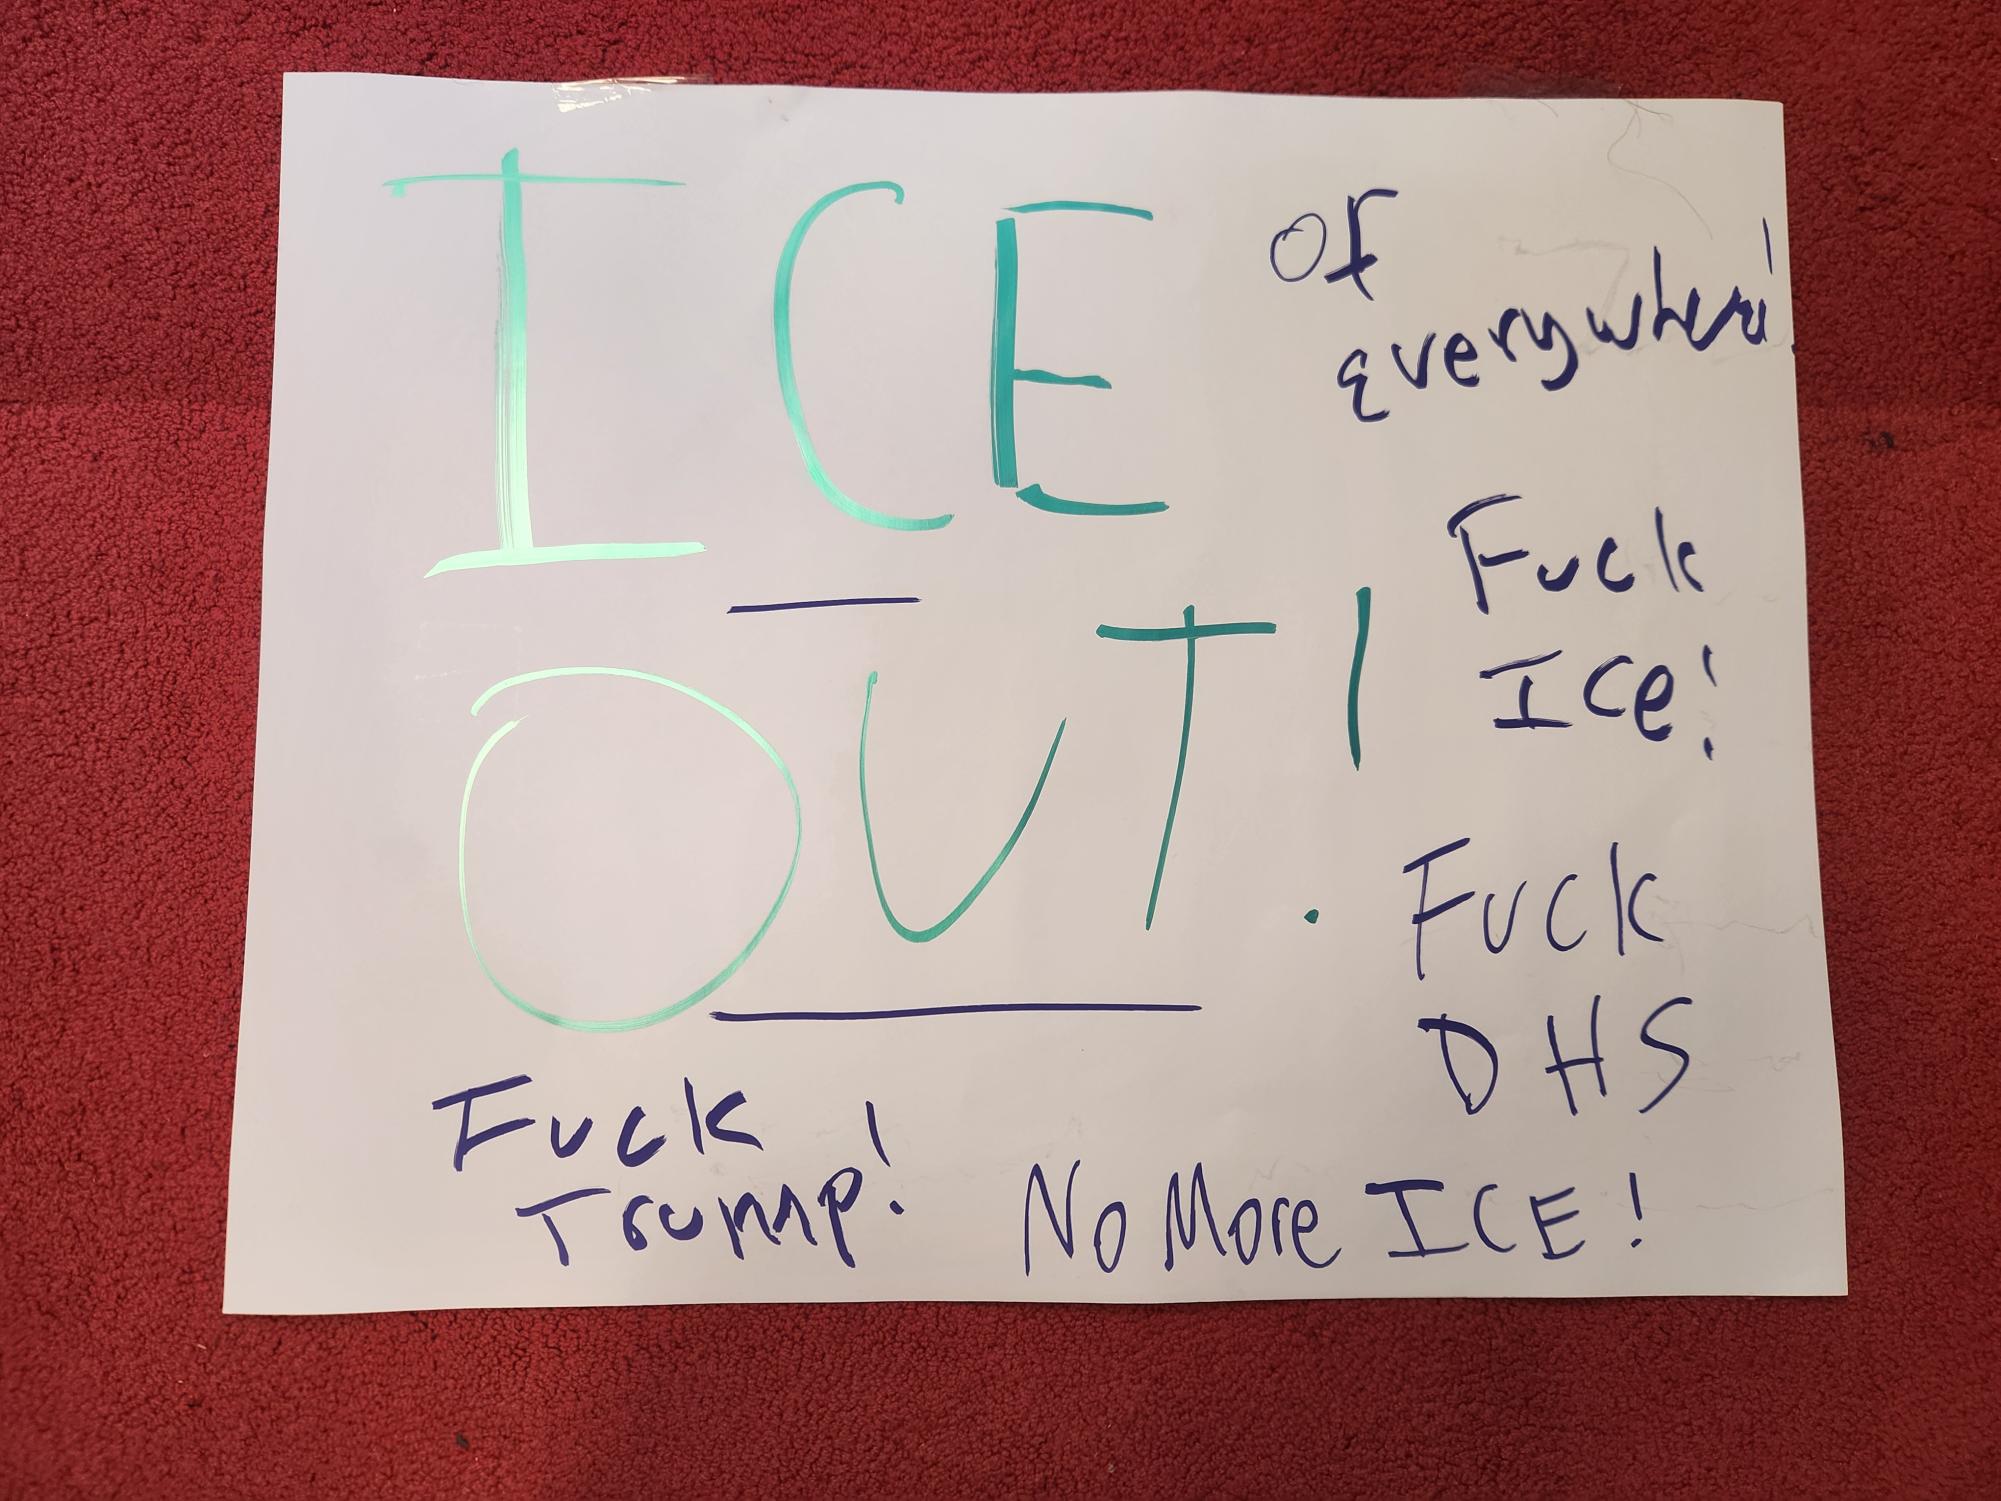 ICE
OUT!
of
everywhere!
Fuck
ICe!
Fuck
DHS
Fuck
Trump!
No More ICE!